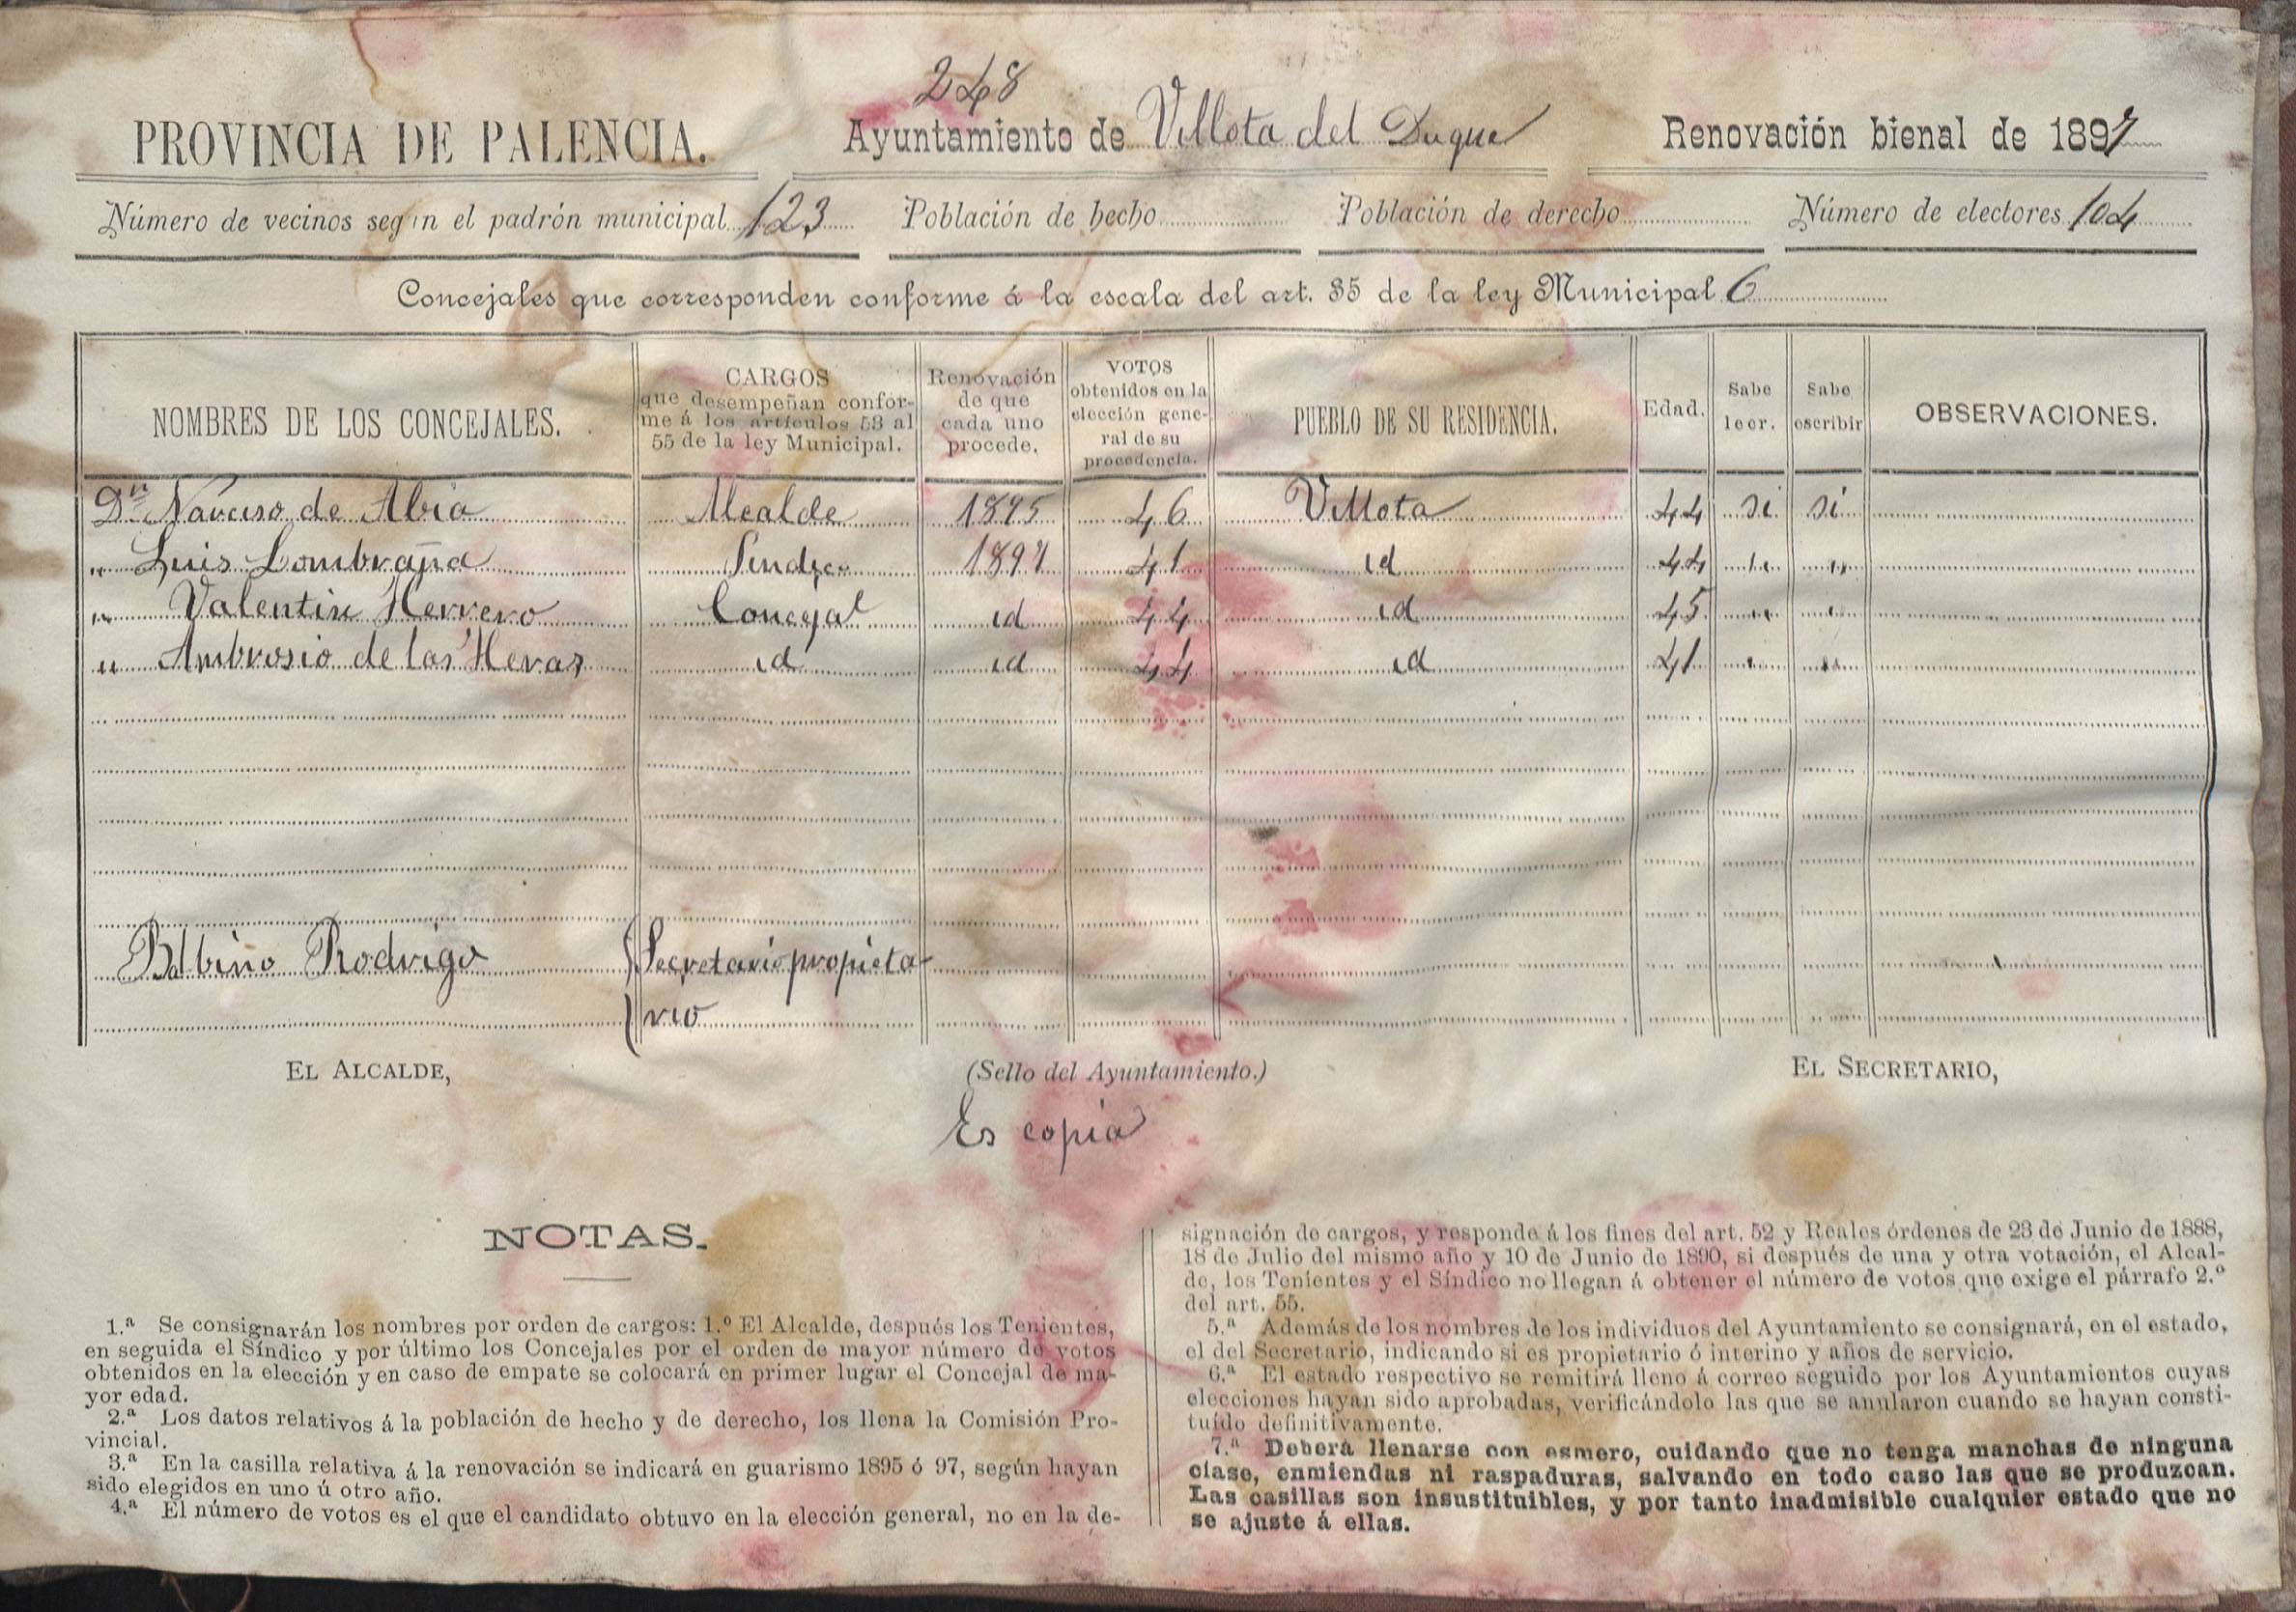 248
PROVINCIA DE PALENCIA. Ayuntamiento de Villota del Duque Renovación bienal de 1897
Número de vecinos según el padrón municipal 123 Población de hecho Población de derecho Número de electores 104
Concejales que corresponden conforme á la escala del art. 35 de la ley Municipal 6
NOMBRES DE LOS CONCEJALES. CARGOS que desempeñan conforme á los artículos 53 al 55 de la ley Municipal. Renovación de que cada uno procede. VOTOS obtenidos en la elección general de su procedencia. PUEBLO DE SU RESIDENCIA. Edad. Sabe leer. Sabe escribir OBSERVACIONES.
Dn Narciso de Abia Alcalde 1895 46 Villota 44 si si
" Luis Lombraña Sindico 1897 41 id 44 " "
" Valentin Herrero Concejal id 44 id 45 " "
" Ambrosio de las Heras id id 44 id 41 " "
Balbino Rodrigo Secretario propieta-
rio
EL ALCALDE, (Sello del Ayuntamiento.) EL SECRETARIO,
Es copia
NOTAS.
1.ª Se consignarán los nombres por orden de cargos: 1.º El Alcalde, después los Tenientes,
en seguida el Síndico y por último los Concejales por el orden de mayor número de votos
obtenidos en la elección y en caso de empate se colocará en primer lugar el Concejal de ma-
yor edad.
2.ª Los datos relativos á la población de hecho y de derecho, los llena la Comisión Pro-
vincial.
3.ª En la casilla relativa á la renovación se indicará en guarismo 1895 ó 97, según hayan
sido elegidos en uno ú otro año.
4.ª El número de votos es el que el candidato obtuvo en la elección general, no en la de-
signación de cargos, y responde á los fines del art. 52 y Reales órdenes de 23 de Junio de 1888,
18 de Julio del mismo año y 10 de Junio de 1890, si después de una y otra votación, el Alcal-
de, los Tenientes y el Síndico no llegan á obtener el número de votos que exige el párrafo 2.º
del art. 55.
5.ª Además de los nombres de los individuos del Ayuntamiento se consignará, en el estado,
el del Secretario, indicando si es propietario ó interino y años de servicio.
6.ª El estado respectivo se remitirá lleno á correo seguido por los Ayuntamientos cuyas
elecciones hayan sido aprobadas, verificándolo las que se anularon cuando se hayan consti-
tuído definitivamente.
7.ª Deberá llenarse con esmero, cuidando que no tenga manchas de ninguna
clase, enmiendas ni raspaduras, salvando en todo caso las que se produzcan.
Las casillas son insustituibles, y por tanto inadmisible cualquier estado que no
se ajuste á ellas.